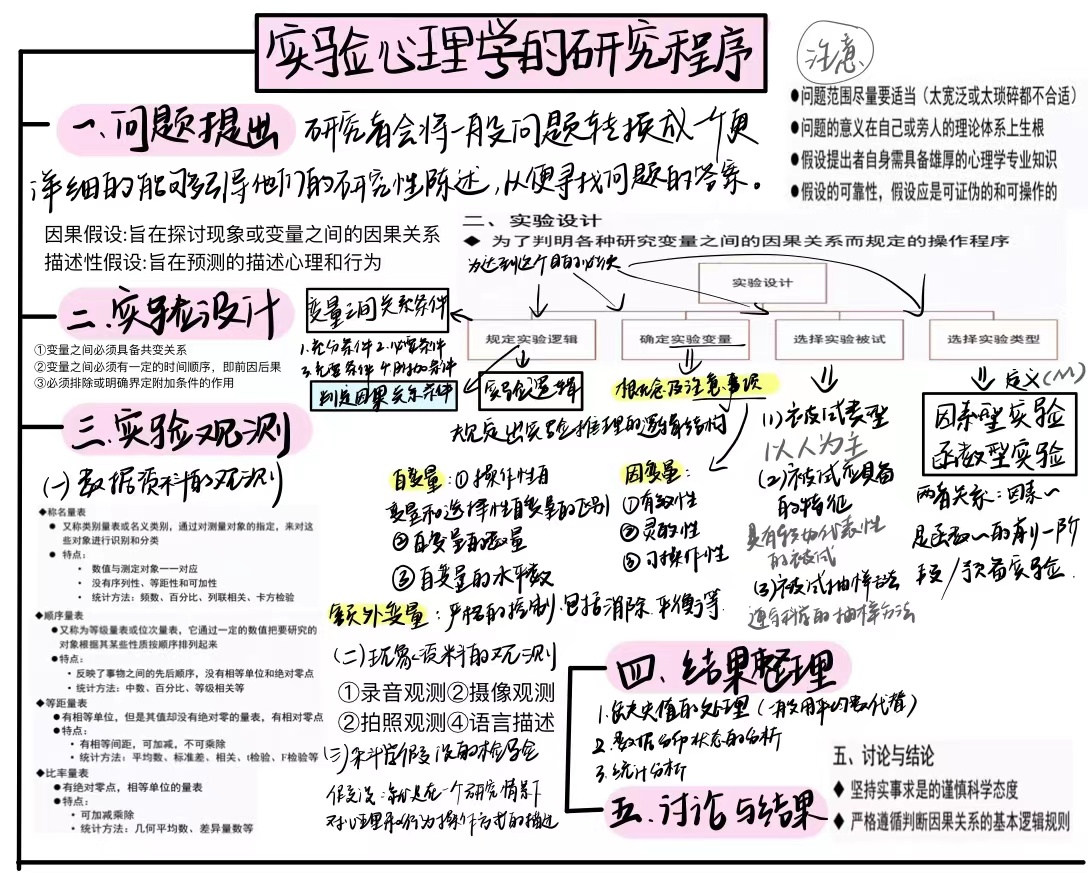 实验心理学的研究程序
注意
●问题范围尽量要适当（太宽泛或太琐碎都不合适）
●问题的意义在自己或旁人的理论体系上生根
●假设提出者自身需具备雄厚的心理学专业知识
●假设的可靠性，假设应是可证伪的和可操作的
一、问题提出 研究者会将一般问题转换成一个更
详细的能够引导他们的研究性陈述，以便寻找问题的答案。
因果假设:旨在探讨现象或变量之间的因果关系
描述性假设:旨在预测的描述心理和行为
二、实验设计
◆ 为了判明各种研究变量之间的因果关系而规定的操作程序
为达到这个目的必须
实验设计
规定实验逻辑
确定实验变量
选择实验被试
选择实验类型
二、实验设计
①变量之间必须具备共变关系
②变量之间必须有一定的时间顺序，即前因后果
③必须排除或明确界定附加条件的作用
变量之间关系条件
1.充分条件 2.必要条件
3.充要条件 4.附加条件
判定因果关系条件
实验逻辑
规定出实验推理的逻辑结构
概念及注意事项
自变量：①操作性自
变量和选择性自变量的区别
②自变量的数量
③自变量的水平数
因变量：
①有效性
②灵敏性
③可操作性
额外变量：严格的控制，包括消除、平衡等.
(1)被试类型
以人为主
(2)被试应具备
的特征
具有较为代表性
的被试
(3)被试抽样方法
遵守科学的抽样方法
定义(M)
因素型实验
函数型实验
两者关系：因素~
是函数~的前一阶
段/预备实验.
三、实验观测
(一)数据资料的观测
◆称名量表
● 又称类别量表或名义类别，通过对测量对象的指定，来对这
些对象进行识别和分类
● 特点：
• 数值与测定对象一一对应
• 没有序列性、等距性和可加性
• 统计方法：频数、百分比、列联相关、卡方检验
◆顺序量表
●又称为等级量表或位次量表，它通过一定的数值把要研究的
对象根据其某些性质按顺序排列起来
●特点：
• 反映了事物之间的先后顺序，没有相等单位和绝对零点
• 统计方法：中数、百分比、等级相关等
◆等距量表
●有相等单位，但是其值却没有绝对零的量表，有相对零点
●特点：
• 有相等间距，可加减，不可乘除
• 统计方法：平均数、标准差、相关、t检验、F检验等
◆比率量表
●有绝对零点，相等单位的量表
●特点：
• 可加减乘除
• 统计方法：几何平均数、差异量数等
(二)现象资料的观测
①录音观测②摄像观测
②拍照观测④语言描述
(三)科学假设的检验
假设：都是在一个研究情景下
对心理和行为操作方式的描述
四、结果整理
1.缺失值的处理（一般用平均数代替）
2.数据分布状态的分析
3.统计分析
五.讨论与结果
五、讨论与结论
◆ 坚持实事求是的谨慎科学态度
◆ 严格遵循判断因果关系的基本逻辑规则